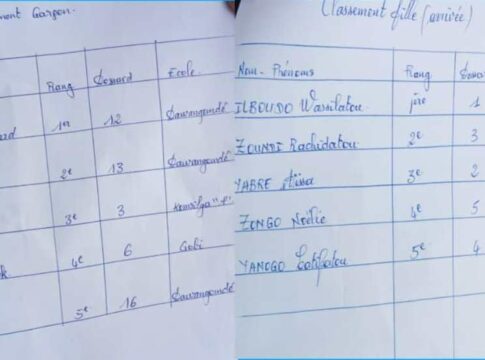 ment Garçon.
Rang Dossard Ecole
ard 1er 12
2e 13
3e 3
k 4e 6 Gobi
5e 16
Classement fille (arrivée)
Nom - Prénoms Rang Dossa
ILBOUDO Wassilatou 1ère 1
ZOUNDI Rachidatou 2e 3
YABRE Aïssa 3e 2
ZONGO Noëlie 4e 5
YANOGO Latifatou 5e 4